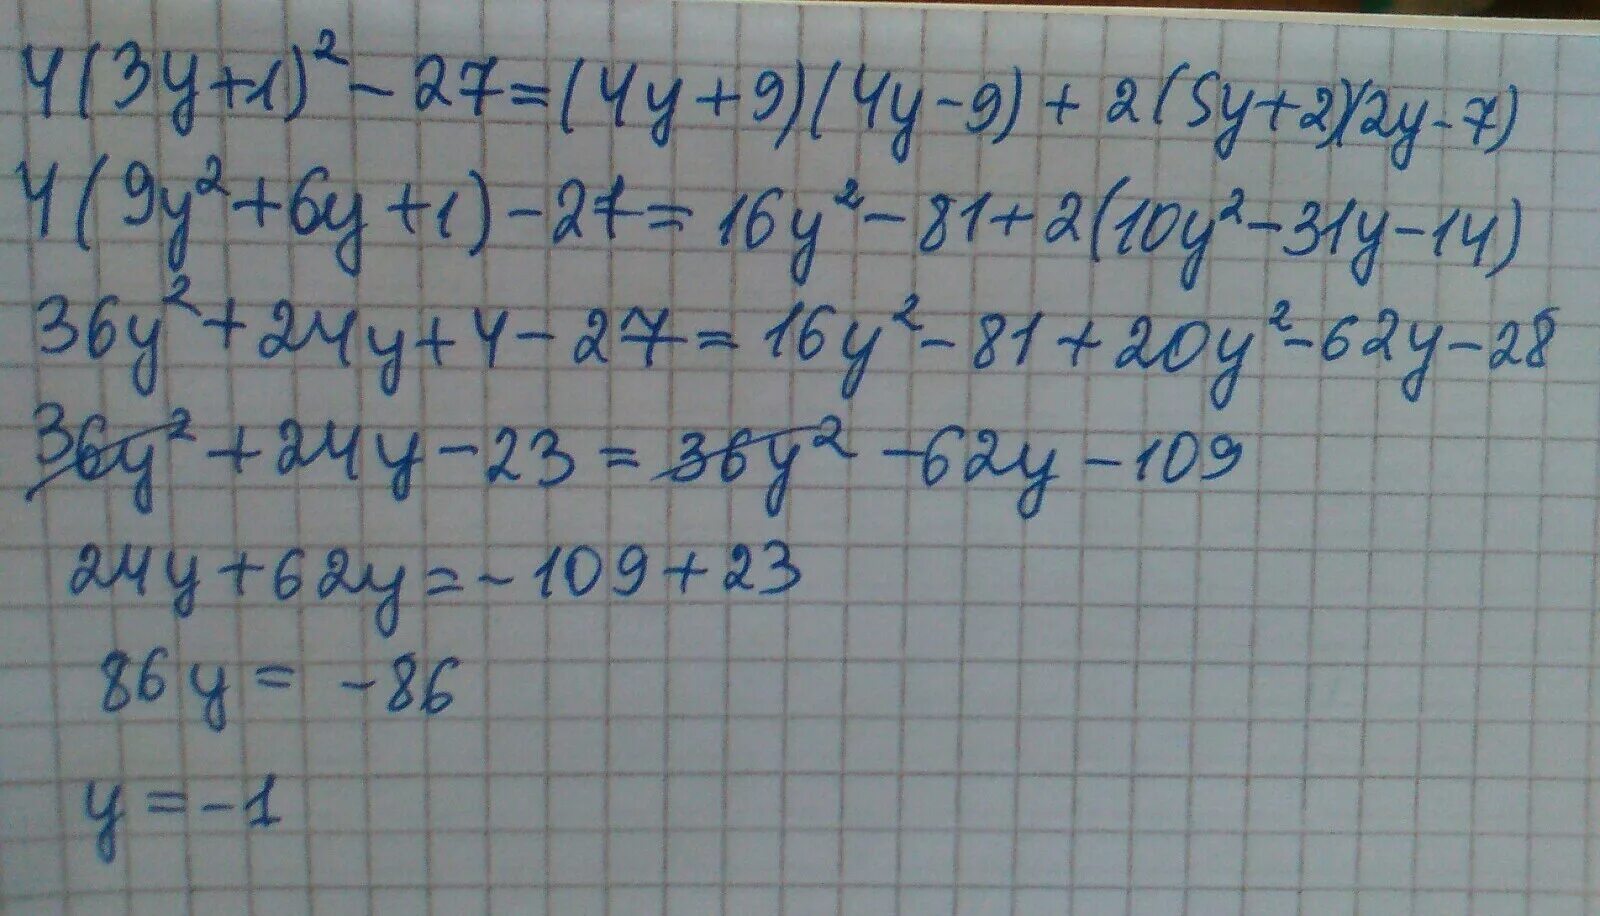 4(3y+1)² - 27 = (4y+9)(4y-9) + 2(5y+2)(2y-7)
4(9y²+6y+1) - 27 = 16y² - 81 + 2(10y² - 31y - 14)
36y² + 24y + 4 - 27 = 16y² - 81 + 20y² - 62y - 28
36y² + 24y - 23 = 36y² - 62y - 109
24y + 62y = -109 + 23
86y = -86
y = -1